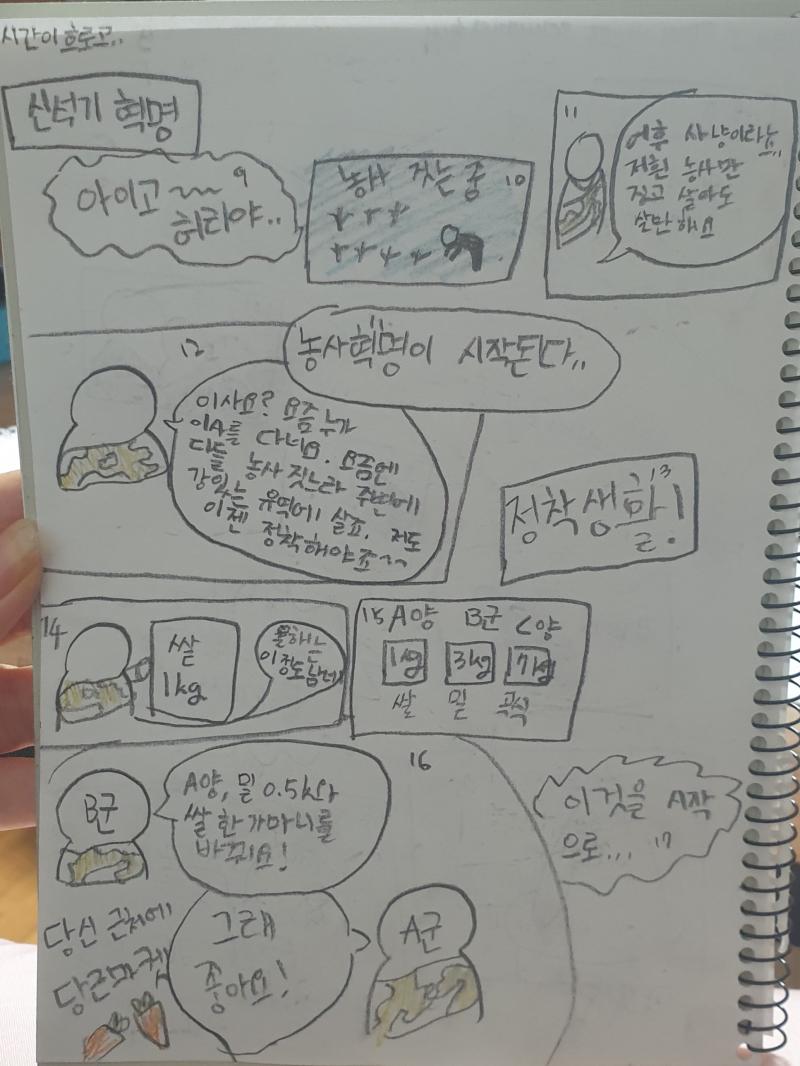 시간이 흐르고..
신석기 혁명
9
아이고~~
허리야..
농사 짓는 중 10
11
어후 사냥이라뇨..
저흰 농사만
짓고 살아도
살만해요
12
농사혁명이 시작된다..
이사요? 요즘 누가
이사를 다녀요. 요즘엔
다들 농사 짓느라 주변에
강있는 유역에 살죠. 저도
이젠 정착해야죠~~
13
정착생활!
14
쌀
1kg
올해는
이 정도 남네
15 A양 B군 C양
1kg 3kg 7kg
쌀 밀 곡식
16
B군
A양, 밀 0.5k와
쌀 한 가마니를
바꿔요!
이것을 시작
으로... 17
당신 근처에
당근마켓
그래
좋아요!
A군